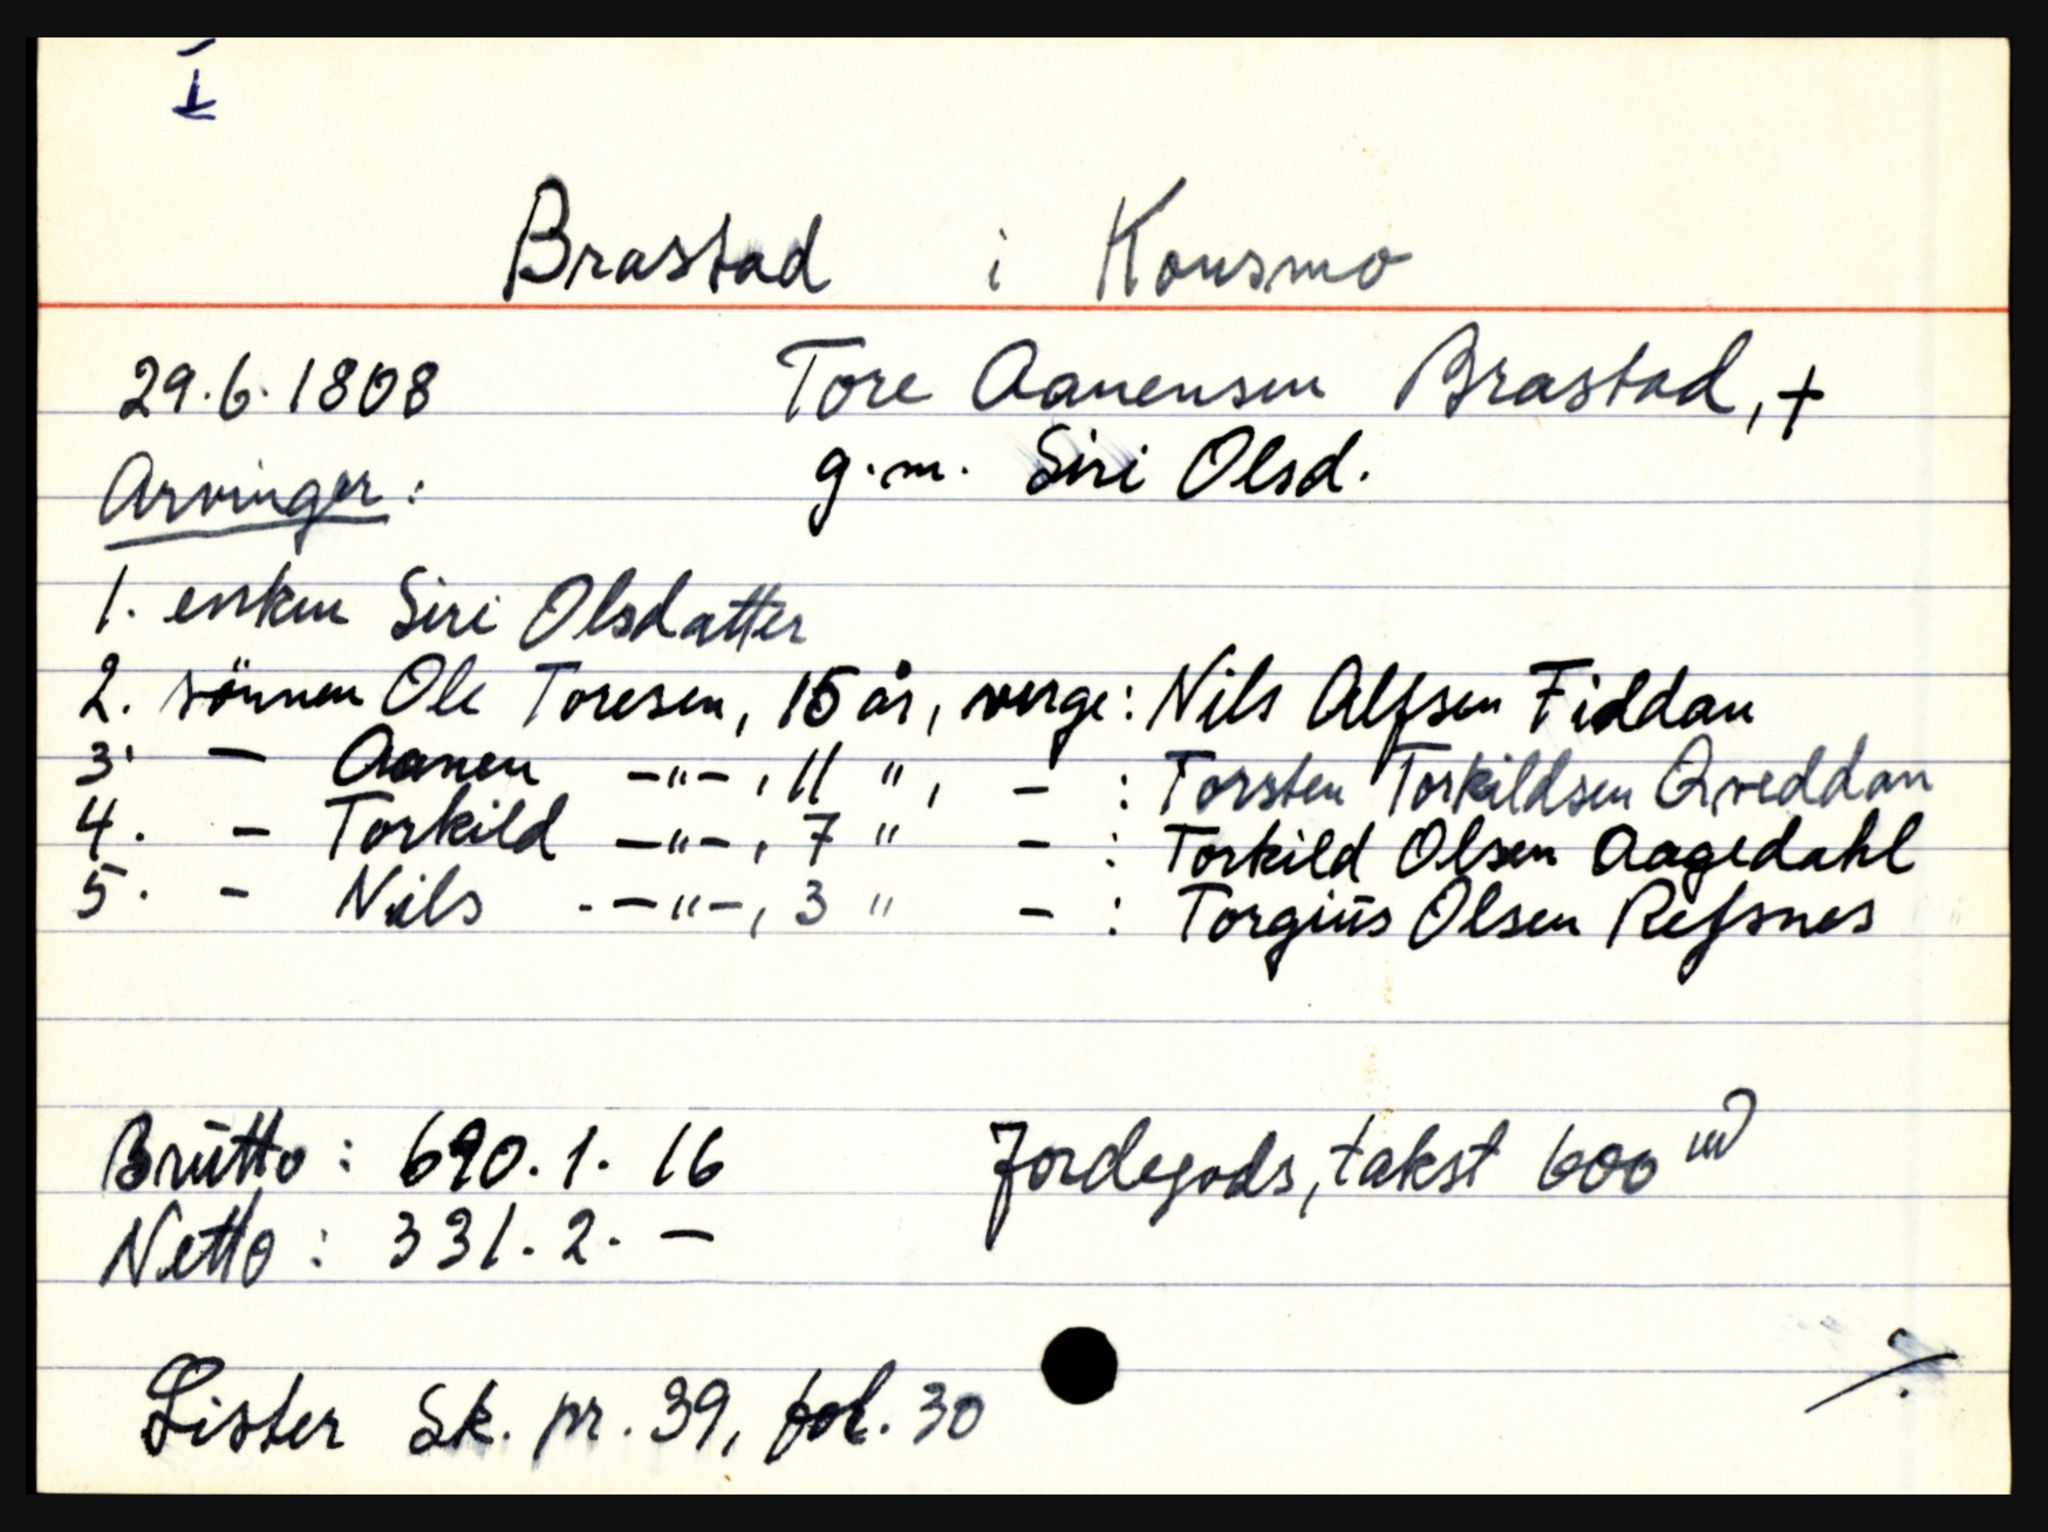 I
Brastad i Konsmo
29.6.1808 Tore Aanensen Brastad, +
g.m. Siri Olsd.
Arvinger:
1. enken Siri Olsdatter
2. sönnen Ole Toresen, 15 år, verge: Nils Alfsen Fiddan
3. - Aanen -"-, 11 ", - : Torsten Torkildsen Qveddan
4. - Torkild -"-, 7 " - : Torkild Olsen Aagedahl
5. - Nils -"-, 3 " - : Torgius Olsen Refsnes
Brutto: 690.1.16 Jordegods, takst 600
Netto: 331.2.-
Lister Sk. pr. 39, fol. 30 ./.